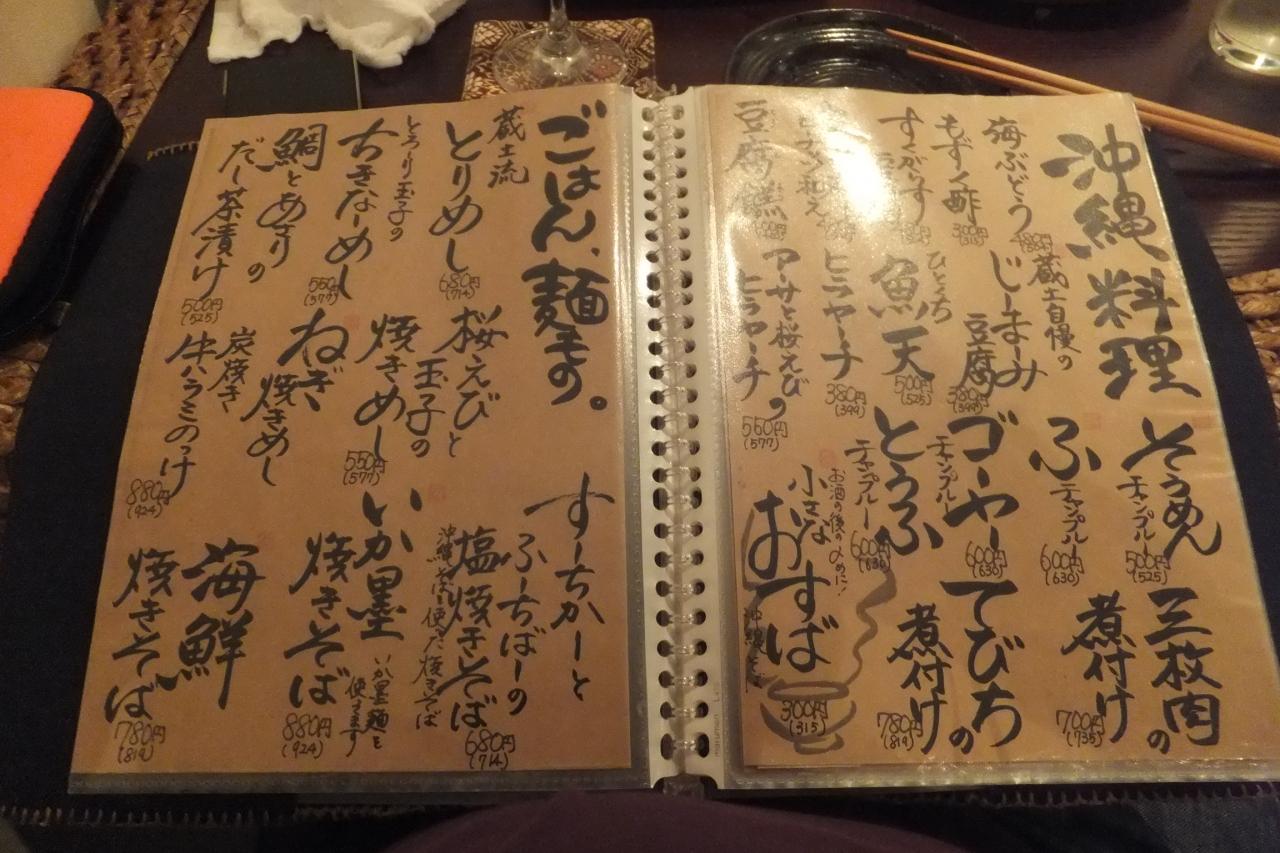 沖縄料理
海ぶどう
480円
もずく酢
300円
(315)
すくがらす
豆腐
蔵士自慢の
じーまみ
豆腐
380円
(399)
ひとくち
魚天
500円
(525)
ヒラヤーチ
380円
(399)
アーサと桜えびの
ヒラヤーチ
550円
(577)
そうめん
チャンプルー
500円
(525)
ふ
チャンプルー
600円
(630)
ゴーヤー
チャンプルー
600円
(630)
とうふ
チャンプルー
600円
(630)
お酒の後の〆に!
小さな
おすば
沖縄そば
300円
(315)
三枚肉の
煮付け
700円
(735)
てびちの
煮付け
780円
(819)
ごはん、麺もの。
蔵士流
とりめし
680円
(714)
とろーり玉子の
ちきなーめし
550円
(577)
鯛とあさりの
だし茶漬け
500円
(525)
桜えびと
玉子の
焼きめし
550円
(577)
ねぎ
焼きめし
炭焼き
牛ハラミのっけ
880円
(924)
すーちかーと
ふーちばーの
塩焼きそば
沖縄そばを使った焼きそば
680円
(714)
いか墨
焼きそば
いか墨麺を
使ってます
880円
(924)
海鮮
焼きそば
780円
(819)